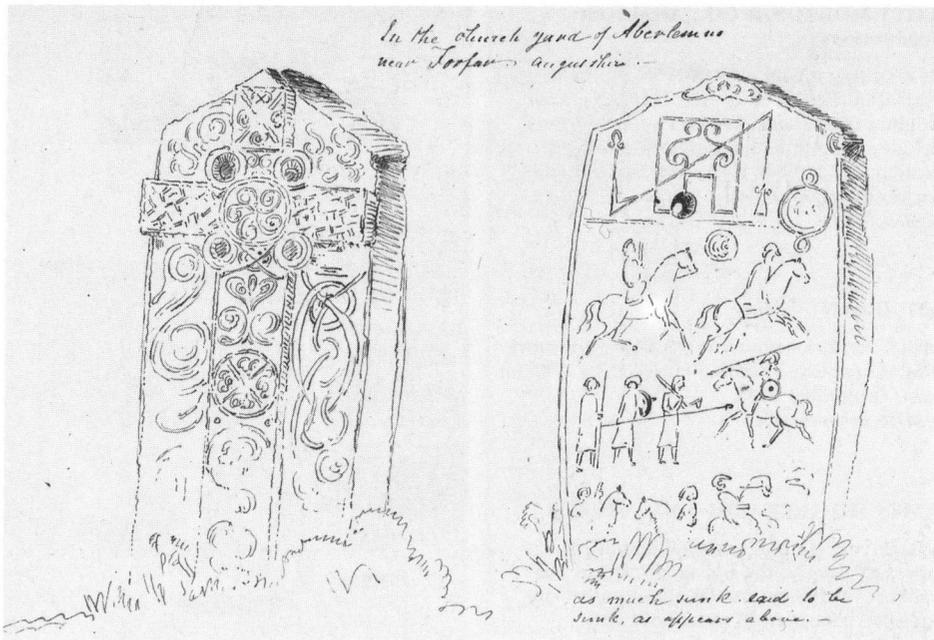 In the church yard of Aberlemno
near Forfar. Angusshire. —
as much sunk. said to be
sunk, as appears above. —